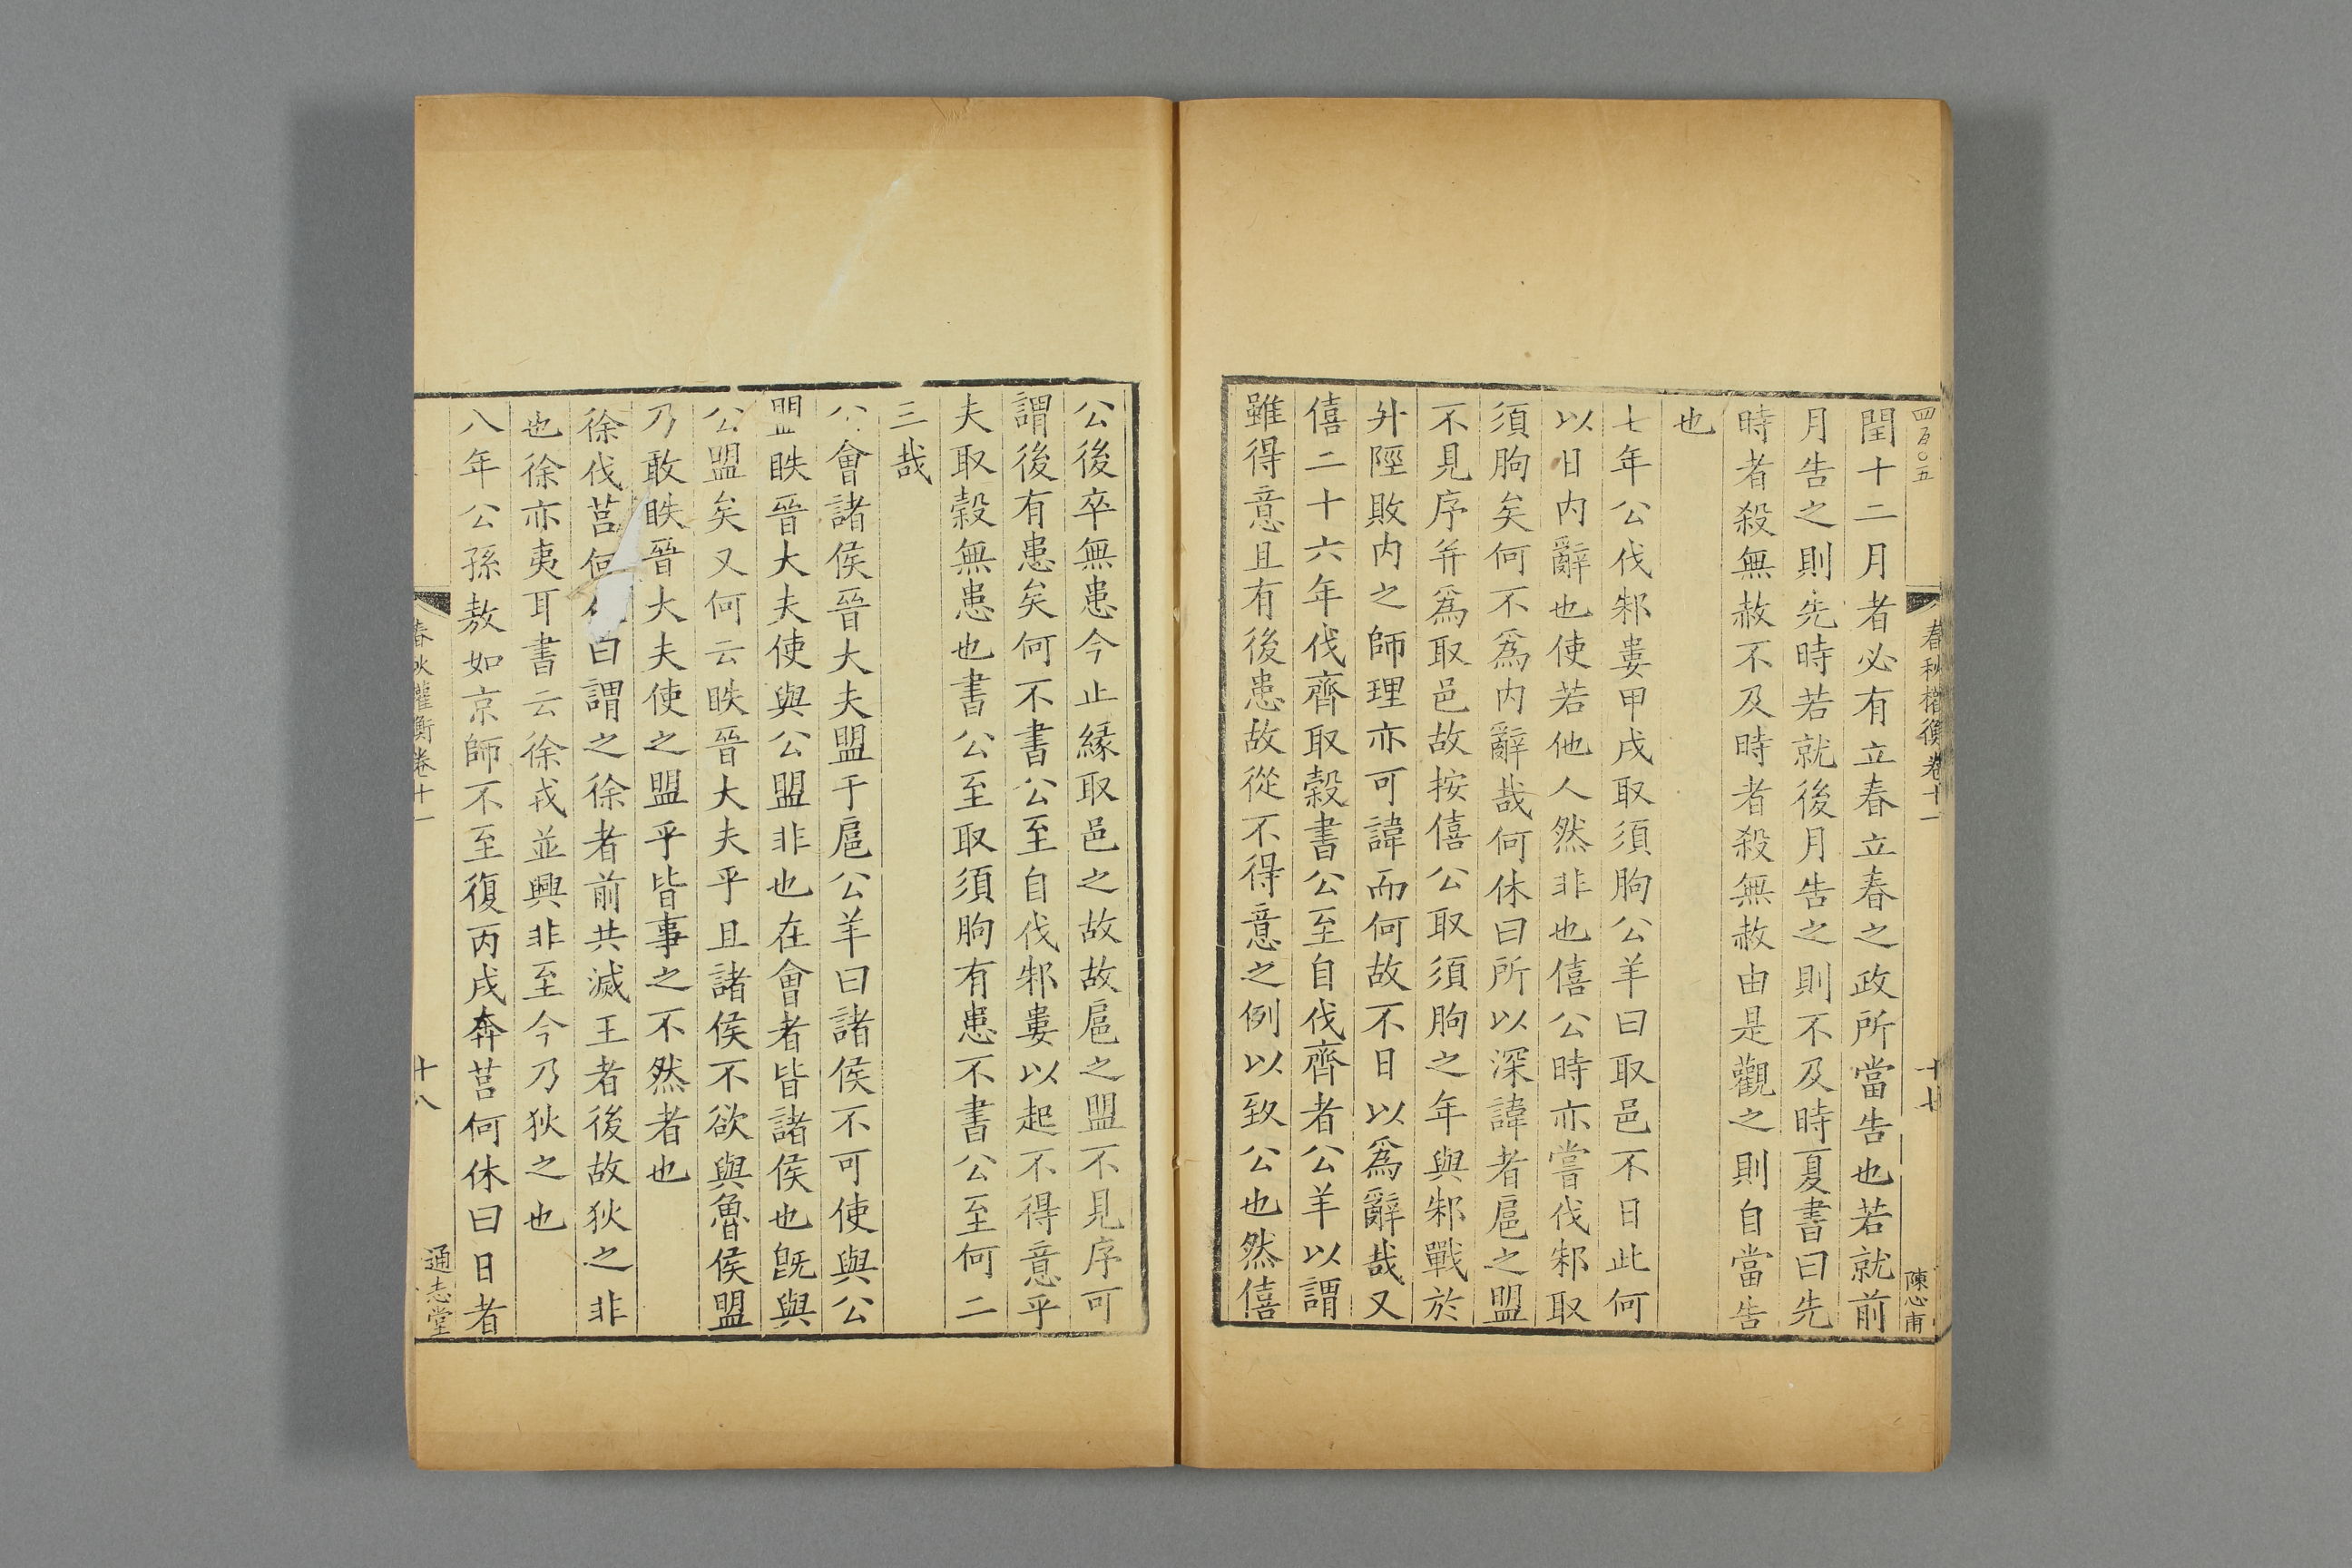 四百〇五
春秋權衡卷十一
十七
陳心甫
閏十二月者必有立春立春之政所當告也若就前
月告之則先時若就後月告之則不及時夏書曰先
時者殺無赦不及時者殺無赦由是觀之則自當告
也
七年公伐邾婁甲戌取須朐公羊曰取邑不日此何
以日内辭也使若他人然非也僖公時亦嘗伐邾取
須朐矣何不爲内辭哉何休曰所以深諱者扈之盟
不見序并爲取邑故按僖公取須朐之年與邾戰於
升陘敗内之師理亦可諱而何故不日以爲辭哉又
僖二十六年伐齊取穀書公至自伐齊者公羊以謂
雖得意且有後患故從不得意之例以致公也然僖
公後卒無患今止緣取邑之故故扈之盟不見序可
謂後有患矣何不書公至自伐邾婁以起不得意乎
夫取穀無患也書公至取須朐有患不書公至何二
三哉
公會諸侯晉大夫盟于扈公羊曰諸侯不可使與公
盟眣晉大夫使與公盟非也在會者皆諸侯也旣與
公盟矣又何云眣晉大夫乎且諸侯不欲與魯侯盟
乃敢眣晉大夫使之盟乎皆事之不然者也
徐伐莒何 曰謂之徐者前共滅王者後故狄之非
也徐亦夷耳書云徐戎並興非至今乃狄之也
八年公孫敖如京師不至復丙戌奔莒何休曰日者
春秋權衡卷十一
十八
通志堂